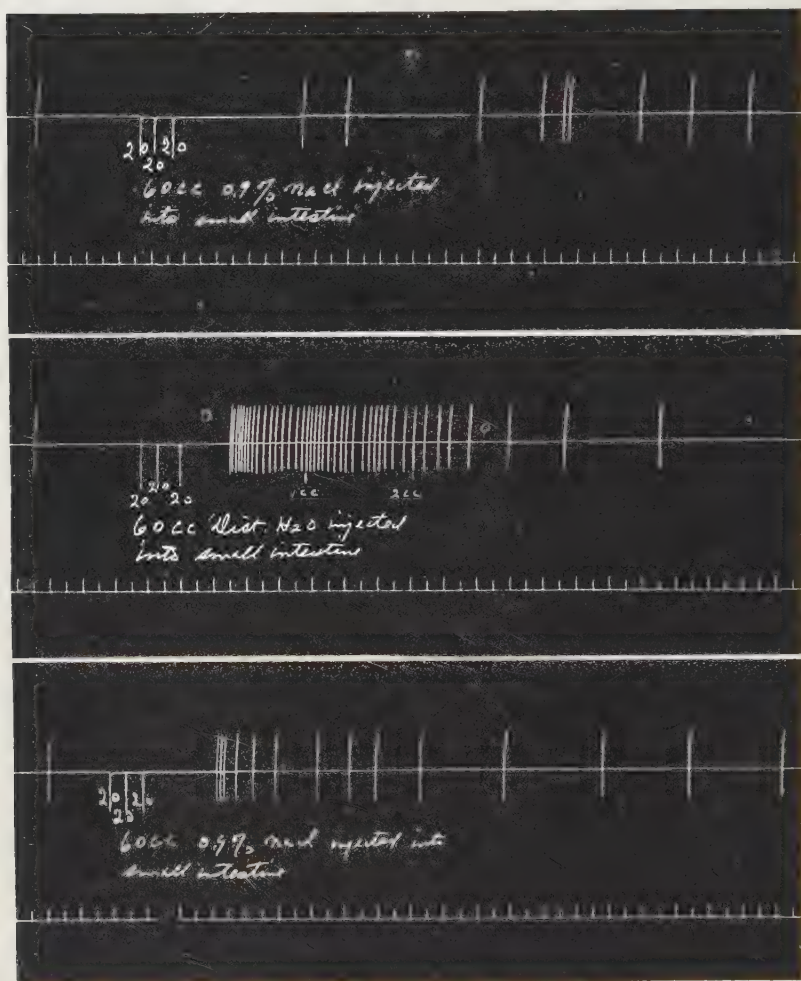 20 20
20
60cc 0.9% NaCl injected
into small intestine
1cc 2cc
20 20 20
60cc Dist. H2O injected
into small intestine
20 20
20
60cc 0.9% NaCl injected into
small intestine